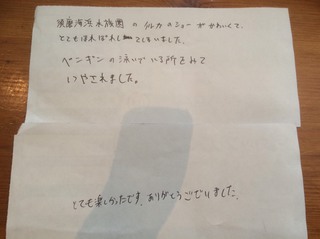 須磨海浜水族園のイルカのショーがかわいくて、
とてもほれぼれしてしまいました。
ペンギンの泳いでいる所をみて
いやされました。
とても楽しかったです。ありがとうございました。